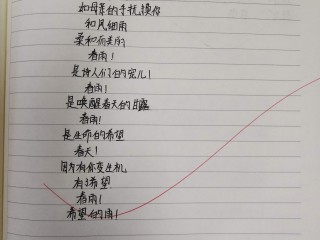 如母亲的手抚摸你
和风细雨
柔和而美的
春雨!
是诗人们的宠儿!
春雨!
是唤醒春天的甘露
春雨!
是生命的希望
春天!
因为有你变生机
有了希望
春雨!
希望的雨!